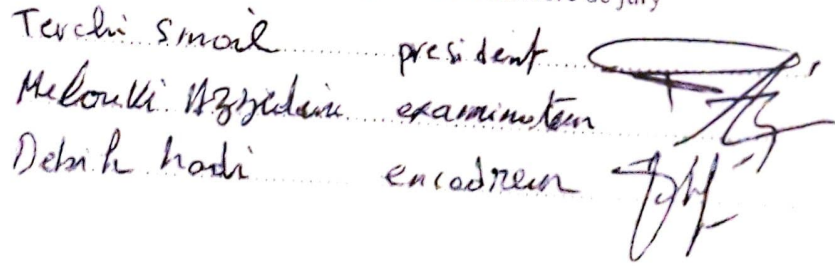 de jury
Terchi Smail president
Melouki Azzedine examinateur
Debih hadi encadreur